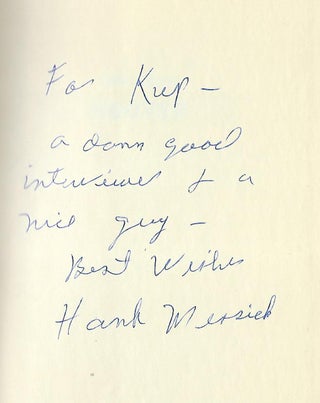 For Kup -
a damn good
interviewer & a
nice guy -
Best Wishes
Hank Messick